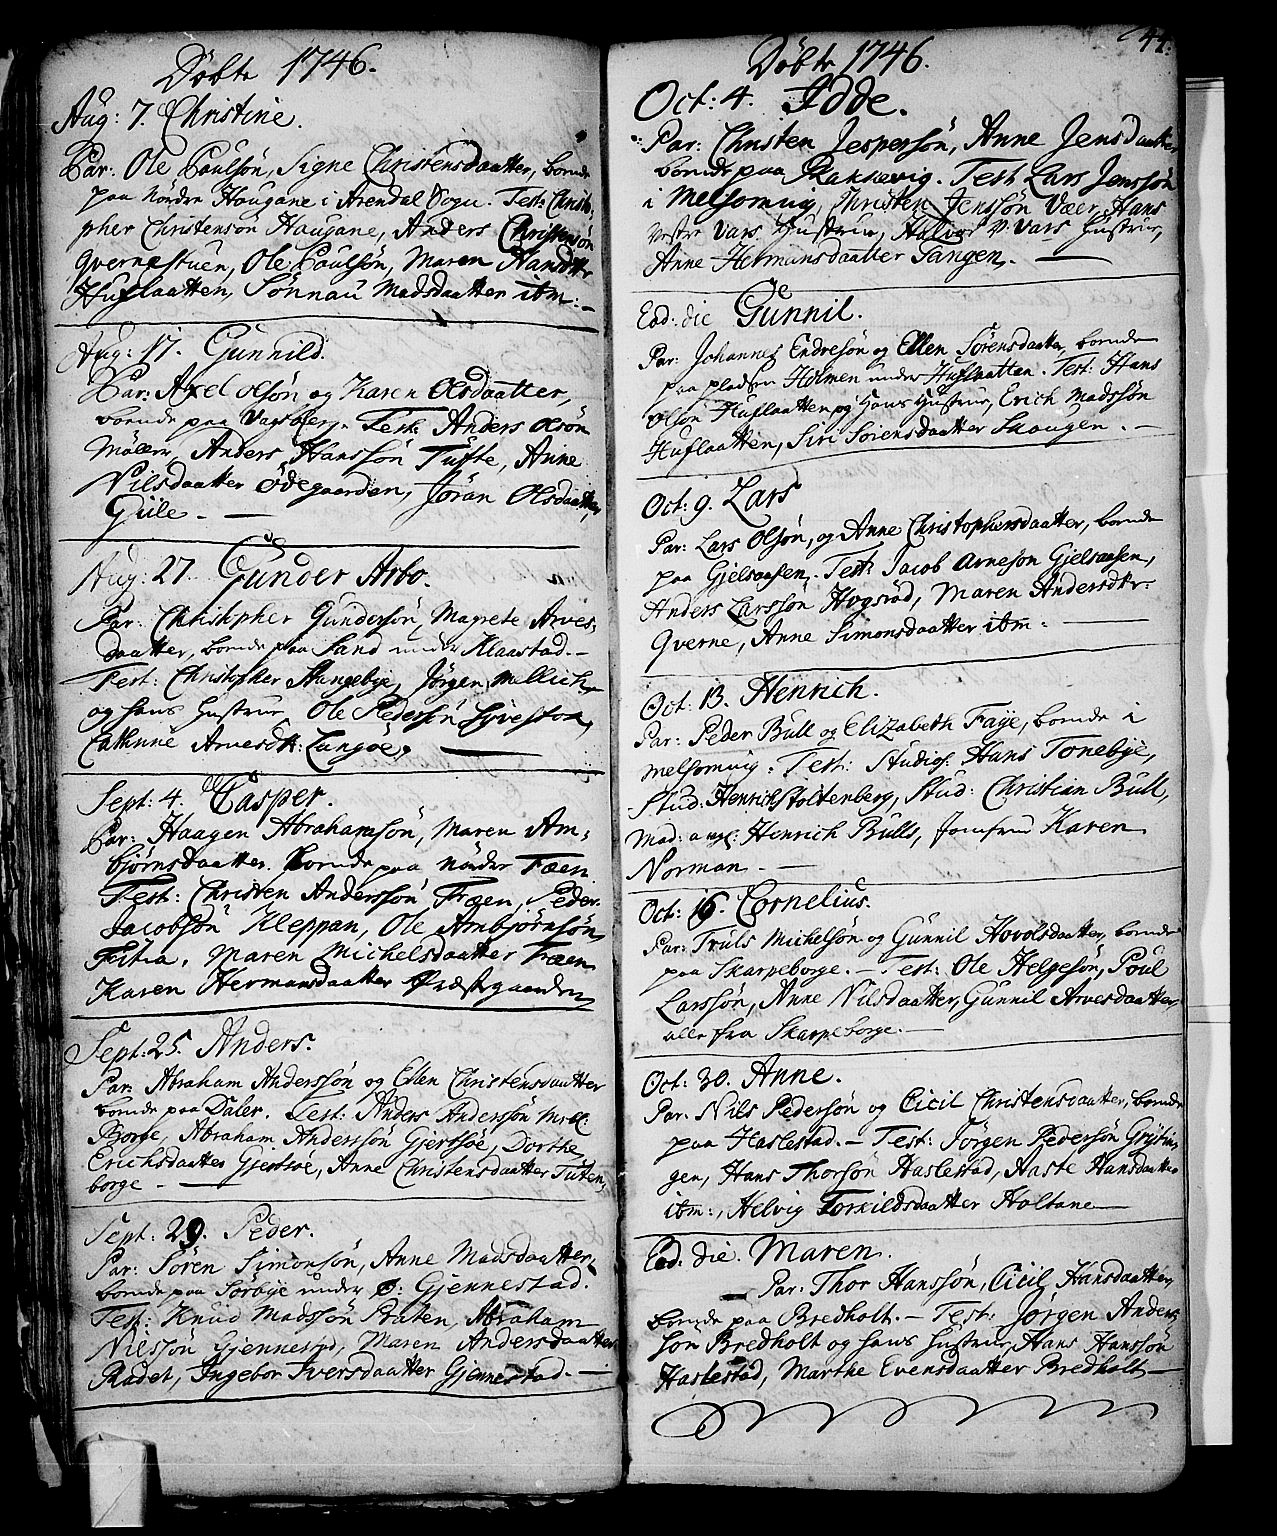 Döbte 1746.
Aug: 7. Christine.
Par: Ole Paulsön, Signe Christensdaatter, boende
paa nordre Haugane i Arendal Sogn. Test: Christo-
pher Christensön Haugane, Anders Christensön
Qvernestuen, Ole Paulsön, Maren Hansdtr
Huflaatten, Sönnau Madsdaatter ibm: —
Aug: 17. Gunnild.
Par: Axel Olsön og Karen Olsdaatter,
boende paa Test: Anders Olsön
Möller, Anders Hanssön Tufte, Anne
Nilsdaatter Ödegaarden, Jöran Olsdaatter,
Güle. —
Aug: 27. Gunder Arbo.
Par: Christopher Gundersön, Magrete Arves-
daatter, boende paa Sand under Klaastad. —
Test: Christopher Haugebye, Jörgen Mellich
og hans Hustrue, Ole Pedersön
Cathrine Arvesdtr: Langöe, —
Sept: 4. Casper.
Par: Haagen Abrahamsön, Maren Am-
björnsdaatter. boende paa nordre Fæen
Test: Christen Anderssön Fræen, Peder
Jacobsön Kleppan, Ole Ambjörnsön
Fitia, Maren Michelsdaatter Fræen
Karen Hermansdaatter Præstegaarden
Sept: 25. Anders.
Par: Abraham Anderssön og Ellen Christensdaatter
boende paa Daler. Test: Anders Anderssön Mell:
Borge, Abraham Anderssön Gjertsöe, Dorthe
Erichsdaatter Gjertsöe, Anne Christensdaatter Tüten-
borge —
Sept: 29. Peder.
Par: Sören Simonsön, Anne Madsdaatter,
boende paa Sörbye under Ö: Gjennestad.
Test: Knud Madssön Præten, Abraham
Nilssön Gjennestad, Maren Andersdaatter
Rædet, Ingebor Iversdaatter Gjennestad. —
44.
Döbte 1746.
Oct: 4. Idde.
Par: Christen Jespersön, Anne Jensdaatter
boende paa Rakkevig. Test Lars Jenssön
i Melsomvig, Christen Jenssön Væer, Hans
Vestre Vars Hustrue, Halvor Vars Hustrue,
Anne Hermansdaatter Tangen. —
Eod: die Gunnil.
Par: Johannes Endresön og Ellen Sörensdaatter, boende
paa pladsen Holmen under Huflaatten. Test: Hans
Olsön Huflaatten og Hans Hustrue, Erich Madssön
Huflaatten, Siri Sörensdaatter Skaugen. —
Oct: 9. Lars
Par: Lars Olsön, og Anne Christophersdaatter, boende
paa Gjelsaasen. Test: Jacob Arnesön Gjelsaasen,
Anders Larssön Hogsröd, Maren Andersdtr:
Qverne, Anne Simonsdaatter ibm: —
Oct: 13. Henrich.
Par: Peder Bull og Elizabeth Faye, boende i
Melsomvig. Test: Studios: Hans Tonebye,
Stud: Henrich Stoltenberg, Stud: Christian Bull,
Mad: Henrich Bulls, Jomfrue Karen
Norman —
Oct: 16. Cornelius.
Par: Truls Michelsön og Gunnil Hovolsdaatter, boende
paa Skarpeborge. — Test: Ole Helgesön, Poul
Larssön, Anne Nilsdaatter, Gunnil Arvesdaatter,
alle fra Skarpeborge. —
Oct: 30. Anne.
Par: Nils Pedersön og Cicil Christensdaatter, boende
paa Haslestad. — Test: Jörgen Pedersön Gryting
gen, Hans Thorsön Haslestad, Aaste Hansdaatter
ibm:, Helvig Torkildsdaatter Holtane —
Eod: die. Maren.
Par: Thor Hanssön, Cicil Hansdaatter,
boende paa Bredholt. — Test: Jörgen Anders
sön Bredholt og hans Hustrue, Hans Hanssön
Haslestad, Marthe Evensdaatter Bredholt —